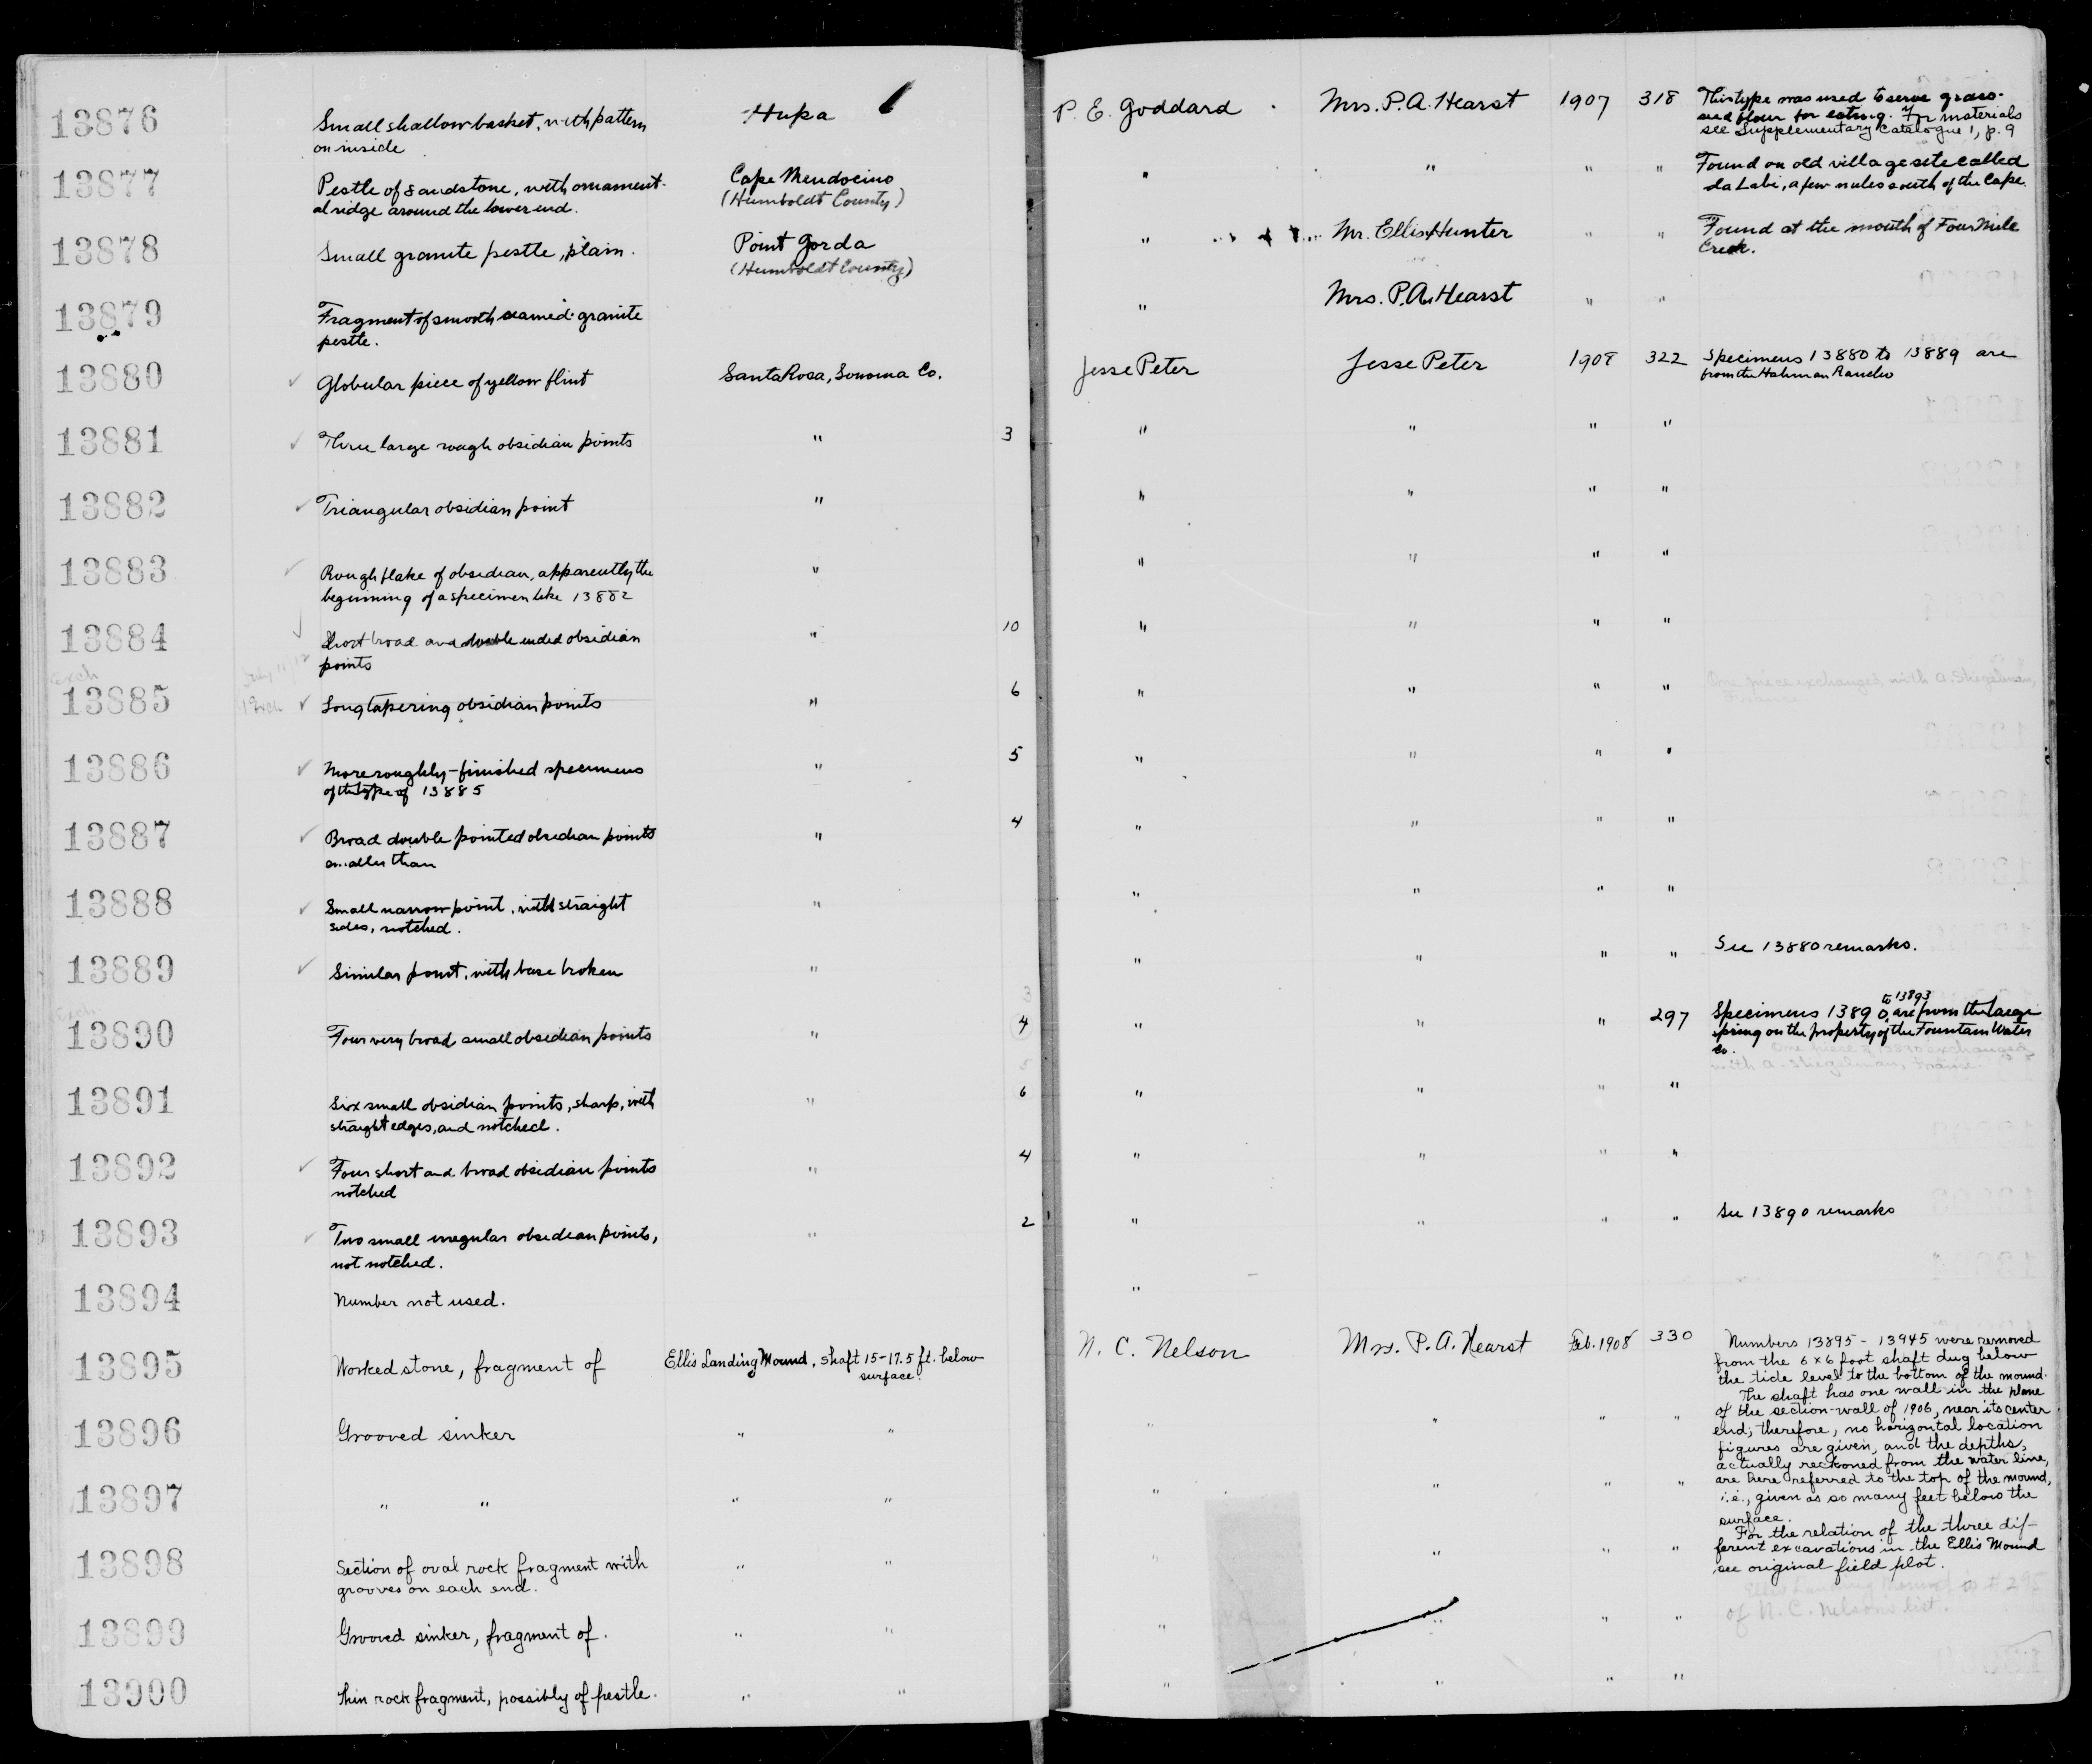 13876 Small shallow basket, with pattern Hupa P. E. Goddard Mrs. P.A. Hearst 1907 318 This type was used to serve grass-
on inside seed flour for eating. For materials
see Supplementary Catalogue 1, p. 9
13877 Pestle of sandstone, with ornament- Cape Mendocino " " " " Found on old village site called
al ridge around the lower end. (Humboldt County) a few miles south of the Cape.
13878 Small granite pestle, plain. Point Gorda " Mr. Ellis Hunter " " Found at the mouth of Four Mile
(Humboldt County) Creek.
13879 Fragment of smooth seamed granite " Mrs. P.A. Hearst " "
pestle.
13880 Globular piece of yellow flint Santa Rosa, Sonoma Co. Jesse Peter Jesse Peter 1908 322 Specimens 13880 to 13889 are
from the Hahman Rancho
13881 Three large rough obsidian points " 3 " " " "
13882 Triangular obsidian point " " " " "
13883 Rough flake of obsidian, apparently the " " " " "
beginning of a specimen like 13882
13884 Short broad and double ended obsidian " 10 " " " "
points
exch
13885 Long tapering obsidian points " 6 " " " " One piece exchanged with A. Stegelman,
France.
13886 More roughly-finished specimens " 5 " " " "
of the type of 13885
13887 Broad double pointed obsidian points " 4 " " " "
smaller than
13888 Small narrow point, with straight " " " " "
sides, notched.
13889 Similar point, with base broken " " " " " See 13880 remarks.
exch
3
13890 Four very broad small obsidian points " 4 " " " 297 Specimens 13890 to 13893 are from the large
spring on the property of the Fountain Water
Co. One piece of 13890 exchanged
with A. Stegelman, France.
5
13891 Six small obsidian points, sharp, with " 6 " " " "
straight edges, and notched.
13892 Four short and broad obsidian points " 4 " " " "
notched
13893 Two small irregular obsidian points, " 2 " " " " See 13890 remarks
not notched.
13894 Number not used. "
13895 Worked stone, fragment of Ellis Landing Mound, shaft 15-17.5 ft. below N. C. Nelson Mrs. P. A. Hearst Feb. 1908 330 Numbers 13895 - 13945 were removed
surface. from the 6 x 6 foot shaft dug below
the tide level to the bottom of the mound.
The shaft has one wall in the plane
13896 Grooved sinker " " " " " " of the section-wall of 1906, near its center
end; therefore, no horizontal location
figures are given, and the depths,
actually reckoned from the water line,
13897 " " " " " " " " are here referred to the top of the mound,
i.e., given as so many feet below the
surface.
For the relation of the three dif-
13898 Section of oval rock fragment with " " " " " " ferent excavations in the Ellis Mound
grooves on each end. see original field plot.
Ellis Landing Mound is # 295
13899 Grooved sinker, fragment of. " " " " " " of N. C. Nelson's list.
13900 Thin rock fragment, possibly of pestle. " " " " " "